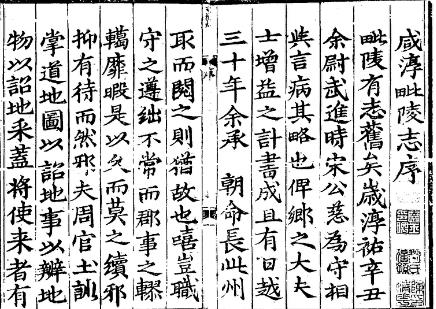 咸淳毗陵志序
毗陵有志舊矣歲淳祐辛丑
余尉武進時宋公慈為守相
與言病其略也俾鄉之大夫
士增益之計書成且有日越
三十年余承 朝命長此州
取而閱之則猶故也嘻豈職
守之遵絀不常而郡事之轇
轕靡暇是以久而莫之續邪
抑有待而然邪夫周官土訓
掌道地圖以詔地事以辨地
物以詔地求蓋將使來者有